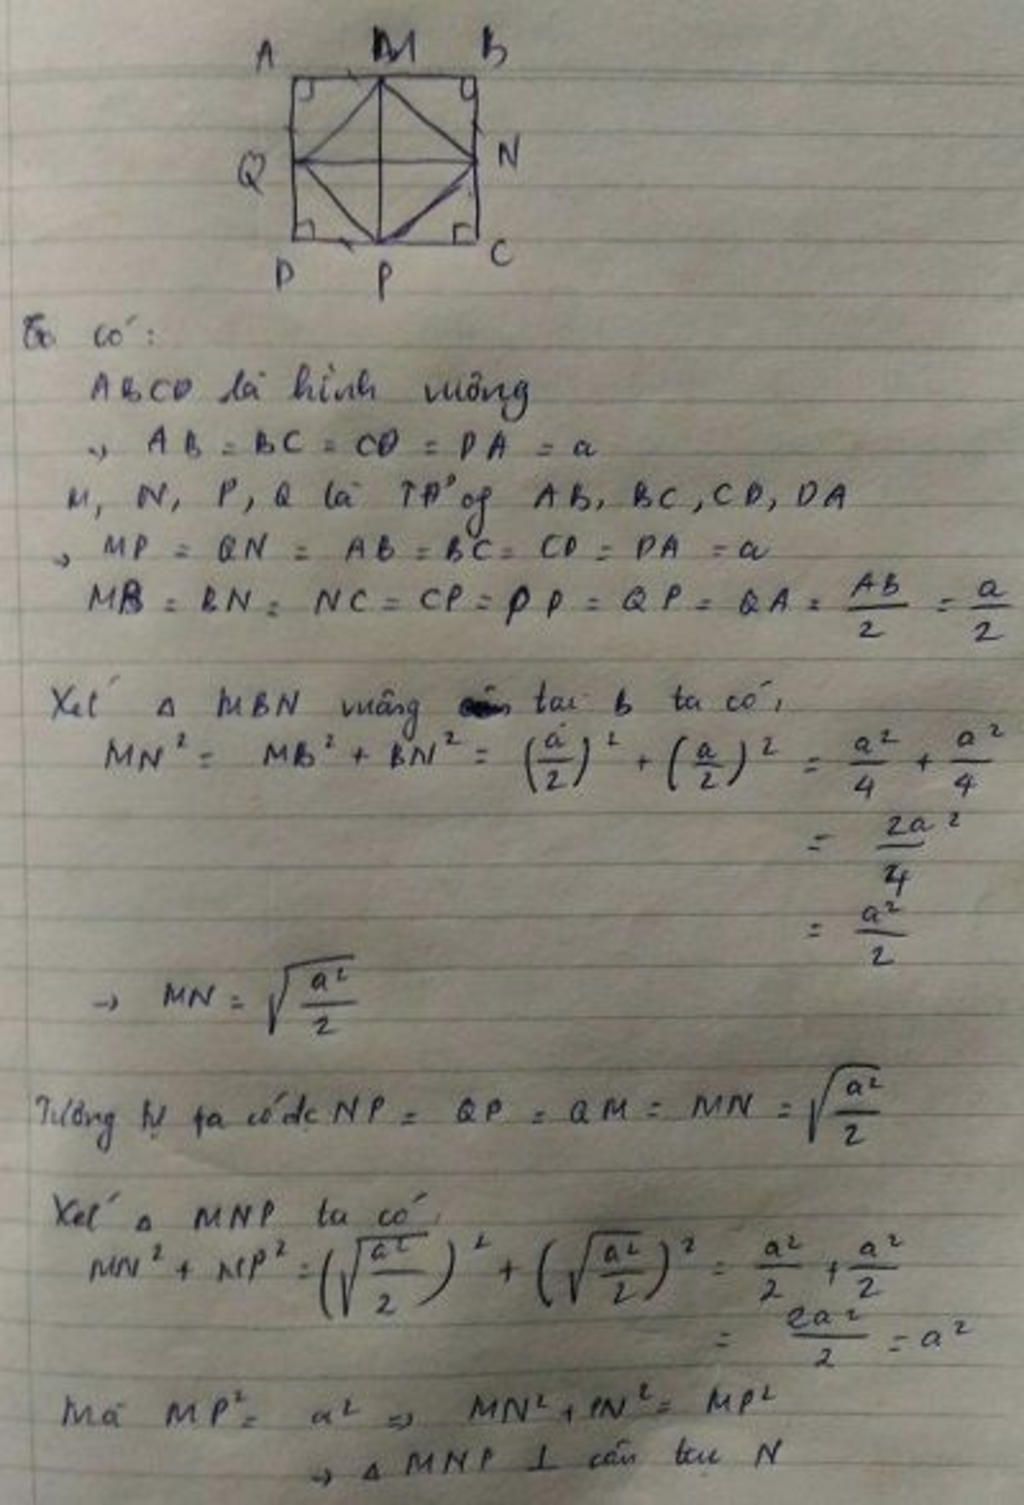 A M B
Q N
D P C
Ta có:
ABCD là hình vuông
→ AB = BC = CD = DA = a
M, N, P, Q là TĐ of AB, BC, CD, DA
→ MP = QN = AB = BC = CD = DA = a
MB = BN = NC = CP = DP = QD = QA = AB/2 = a/2
Xét Δ MBN vuông tại B ta có,
MN² = MB² + BN² = (a/2)² + (a/2)² = a²/4 + a²/4
= 2a²/4
= a²/2
→ MN = √(a²/2)
Tương tự ta có đc NP = QP = QM = MN = √(a²/2)
Xét Δ MNP ta có,
MN² + NP² = (√(a²/2))² + (√(a²/2))² = a²/2 + a²/2
= 2a²/2 = a²
Mà MP² = a² ⇒ MN² + PN² = MP²
→ Δ MNP ⊥ cân tại N